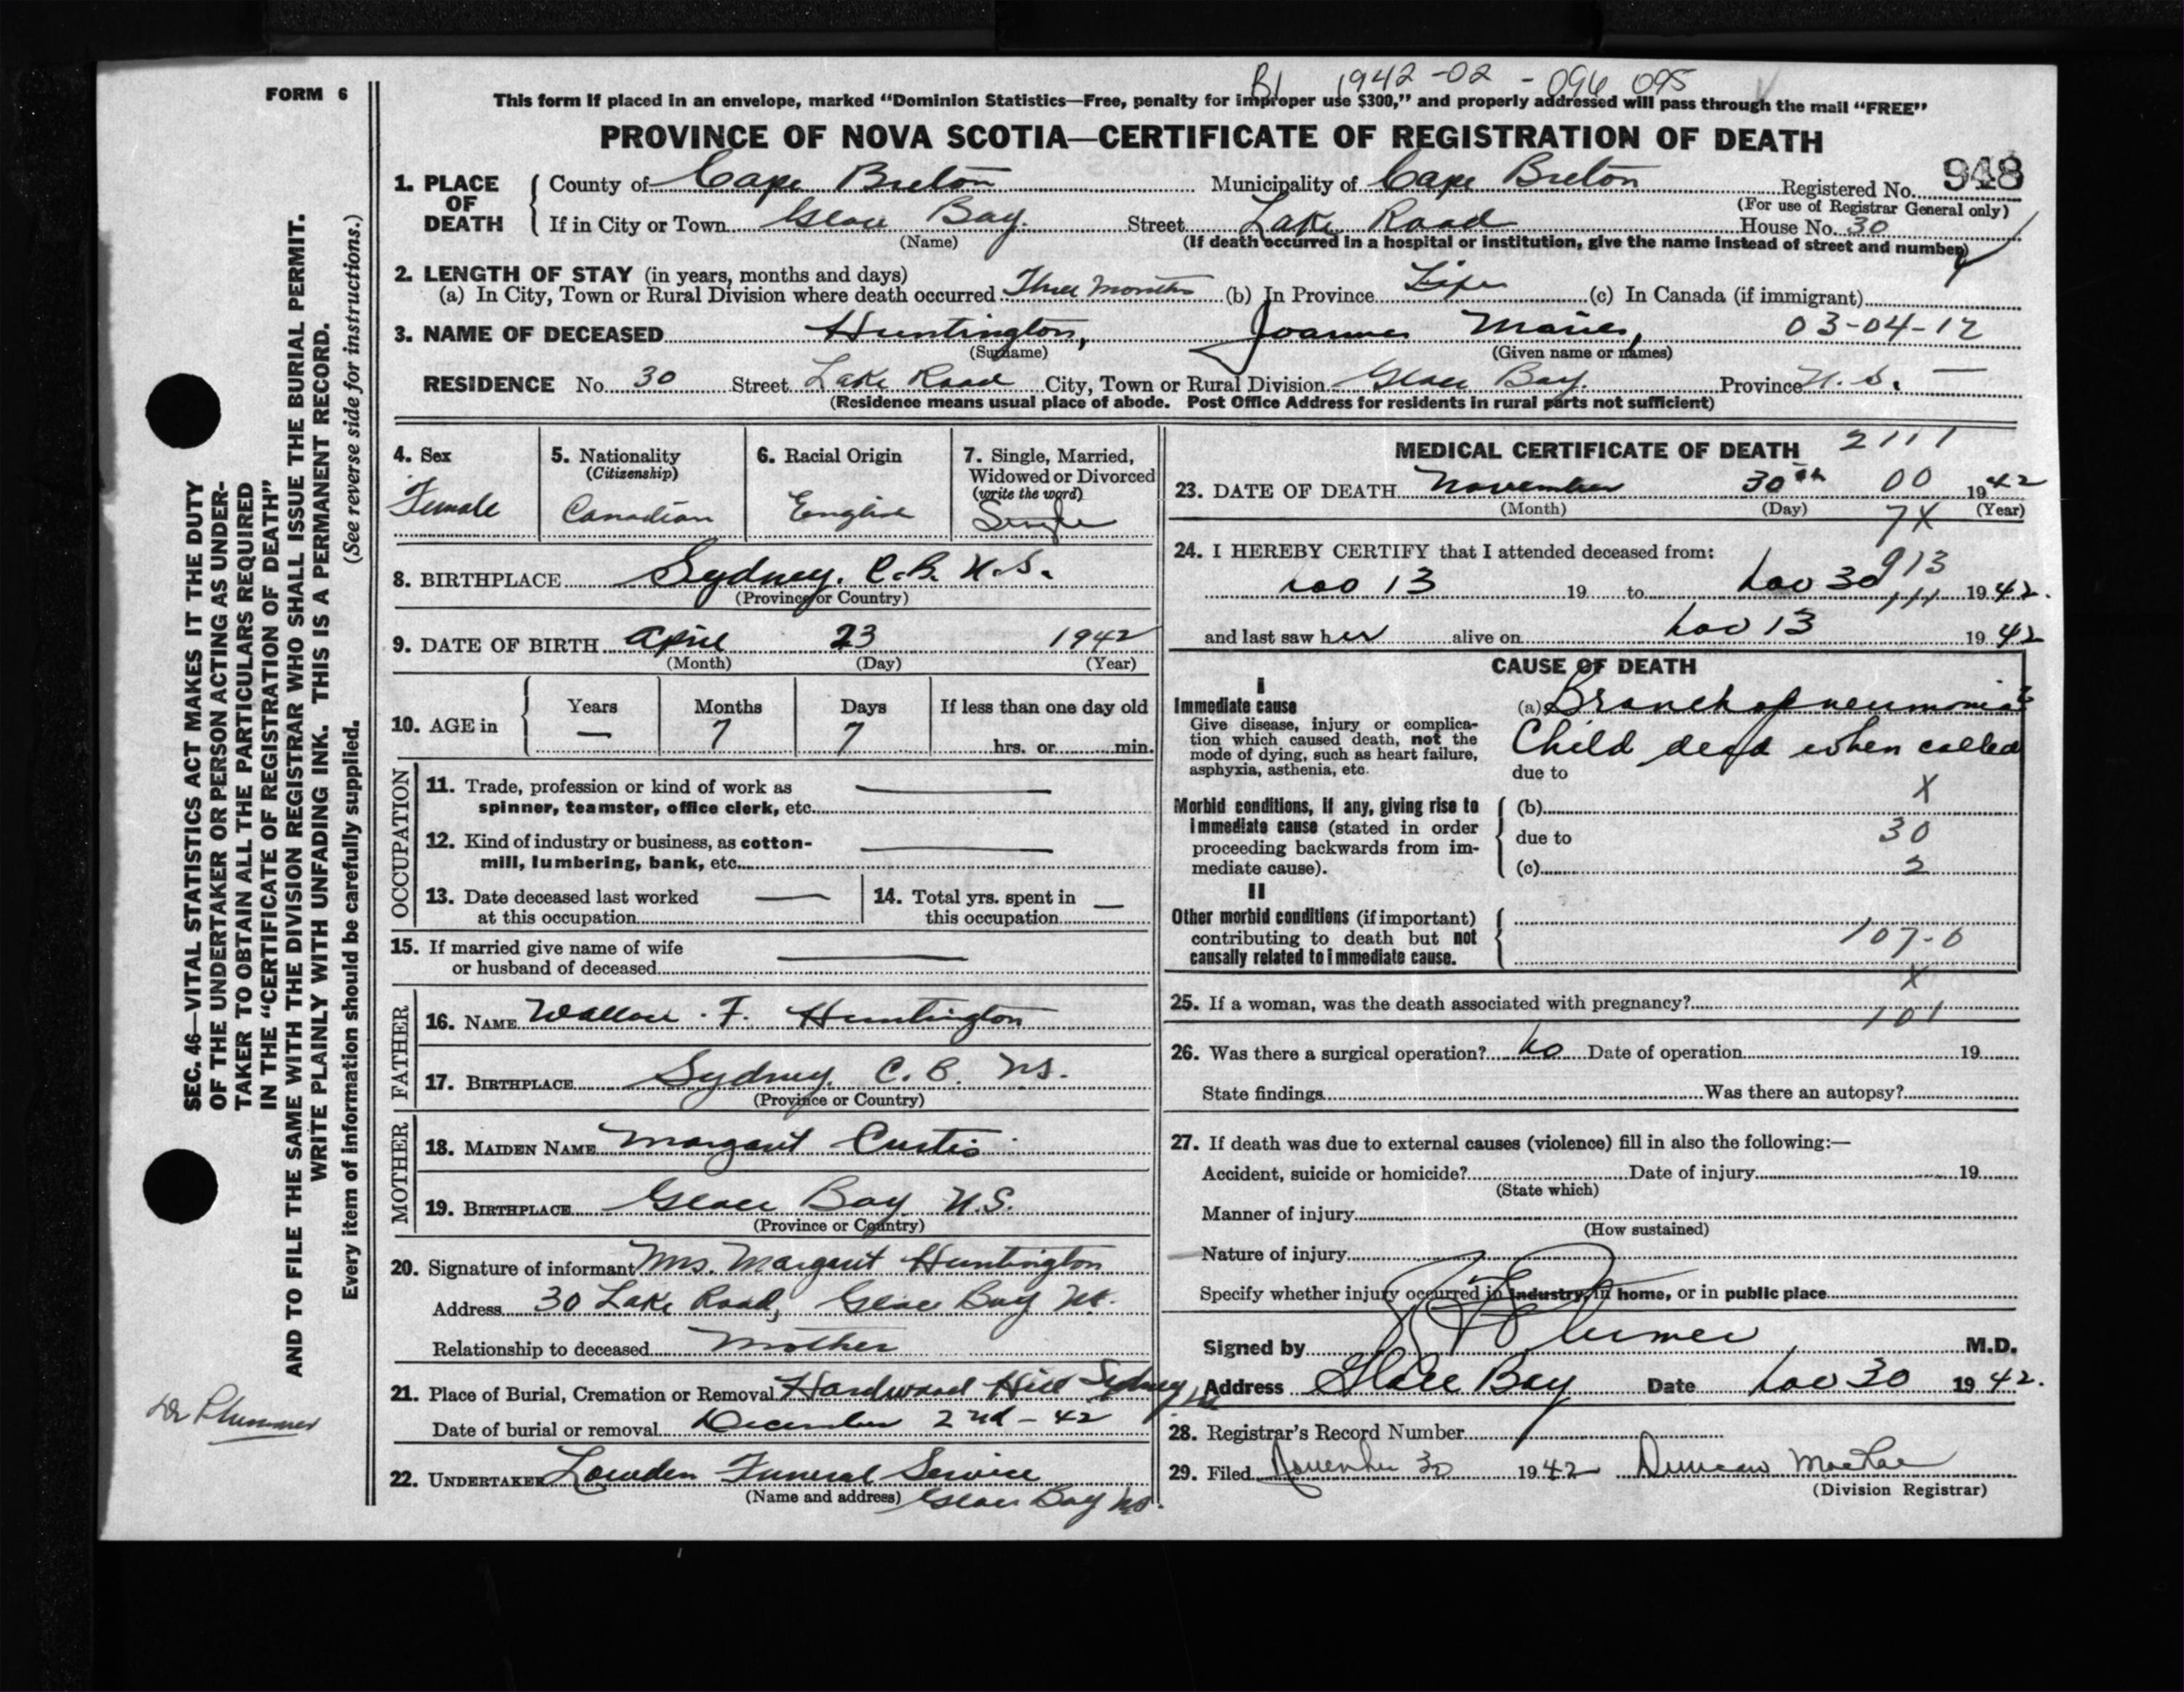 B1 1942-02-096 095
FORM 6
This form if placed in an envelope, marked “Dominion Statistics—Free, penalty for improper use $300,” and properly addressed will pass through the mail “FREE”
PROVINCE OF NOVA SCOTIA—CERTIFICATE OF REGISTRATION OF DEATH
1. PLACE OF DEATH County of Cape Breton Municipality of Cape Breton Registered No. 948
(For use of Registrar General only)
If in City or Town Glace Bay. Street Lake Road House No. 30
(Name) (If death occurred in a hospital or institution, give the name instead of street and number)
2. LENGTH OF STAY (in years, months and days)
(a) In City, Town or Rural Division where death occurred Three Months (b) In Province Life (c) In Canada (if immigrant)
3. NAME OF DECEASED Huntington, Joanne Marie, 03-04-12
(Surname) (Given name or names)
RESIDENCE No. 30 Street Lake Road City, Town or Rural Division Glace Bay. Province N.S. —
(Residence means usual place of abode. Post Office Address for residents in rural parts not sufficient)
4. Sex
Female
5. Nationality
(Citizenship)
Canadian
6. Racial Origin
English
7. Single, Married,
Widowed or Divorced
(write the word)
Single
8. BIRTHPLACE Sydney. C.B. N.S.
(Province or Country)
9. DATE OF BIRTH April 23 1942
(Month) (Day) (Year)
10. AGE in Years — Months 7 Days 7 If less than one day old
hrs. or min.
OCCUPATION
11. Trade, profession or kind of work as
spinner, teamster, office clerk, etc. —
12. Kind of industry or business, as cotton-
mill, lumbering, bank, etc. —
13. Date deceased last worked
at this occupation —
14. Total yrs. spent in
this occupation —
15. If married give name of wife
or husband of deceased —
FATHER
16. NAME Wallace . F. Huntington
17. BIRTHPLACE Sydney. C.B. N.S.
(Province or Country)
MOTHER
18. MAIDEN NAME Margaret Curtis
19. BIRTHPLACE Glace Bay. N.S.
(Province or Country)
20. Signature of informant Mrs. Margaret Huntington
Address 30 Lake Road, Glace Bay NS.
Relationship to deceased Mother
21. Place of Burial, Cremation or Removal Hardwood Hill Sydney NS
Date of burial or removal December 2nd - 42
22. UNDERTAKER Lowden Funeral Service
(Name and address) Glace Bay NS.
MEDICAL CERTIFICATE OF DEATH 2111
23. DATE OF DEATH November 30th 00 1942
(Month) (Day) (Year)
7X
24. I HEREBY CERTIFY that I attended deceased from:
913
Nov 13 19 to Nov 30 1942.
111
and last saw her alive on Nov 13 1942
CAUSE OF DEATH
I
Immediate cause
Give disease, injury or complica-
tion which caused death, not the
mode of dying, such as heart failure,
asphyxia, asthenia, etc.
(a) Bronchopneumonia
Child dead when called
due to
X
Morbid conditions, if any, giving rise to
immediate cause (stated in order
proceeding backwards from im-
mediate cause).
(b)
due to 30
(c) 2
II
Other morbid conditions (if important)
contributing to death but not
causally related to immediate cause.
107-0
X
25. If a woman, was the death associated with pregnancy?
101
26. Was there a surgical operation? No Date of operation 19
State findings Was there an autopsy?
27. If death was due to external causes (violence) fill in also the following:—
Accident, suicide or homicide? Date of injury 19
(State which)
Manner of injury
(How sustained)
Nature of injury
Specify whether injury occurred in industry, in home, or in public place
Signed by Plummer M.D.
Address Glace Bay Date Nov 30 1942.
28. Registrar’s Record Number
29. Filed November 30 1942 Duncan MacRae
(Division Registrar)
SEC. 46—VITAL STATISTICS ACT MAKES IT THE DUTY
OF THE UNDERTAKER OR PERSON ACTING AS UNDER-
TAKER TO OBTAIN ALL THE PARTICULARS REQUIRED
IN THE “CERTIFICATE OF REGISTRATION OF DEATH”
AND TO FILE THE SAME WITH THE DIVISION REGISTRAR WHO SHALL ISSUE THE BURIAL PERMIT.
WRITE PLAINLY WITH UNFADING INK. THIS IS A PERMANENT RECORD.
Every item of information should be carefully supplied. (See reverse side for instructions.)
Dr Plummer